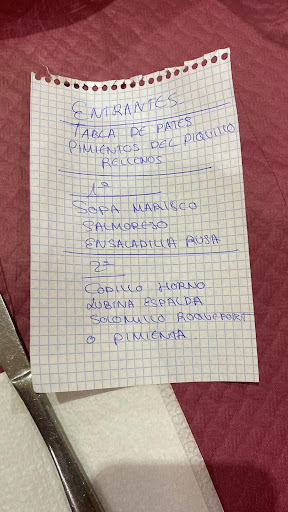 ENTRANTES
TABLA DE PATES
PIMIENTOS DEL PIQUILLO
RELLENOS
1º
SOPA MARISCO
SALMOREJO
ENSALADILLA RUSA
2º
CODILLO HORNO
LUBINA ESPALDA
SOLOMILLO ROQUEFORT
O PIMIENTA